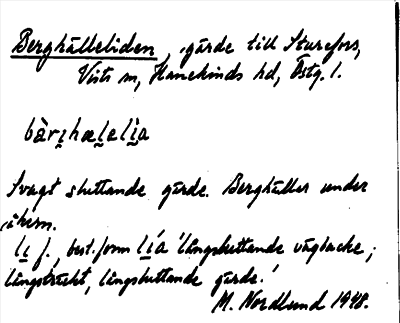 Berghälleliden, gärde till Sturefors,
Vists sn, Hanekinds hd, Östg. l.
bàrihælelia
Svagt sluttande gärde. Berghäller under
åkern.
li f., best. form lía 'långsluttande vägbacke;
långsträckt, långsluttande gärde.'
M. Nordlund 1948.